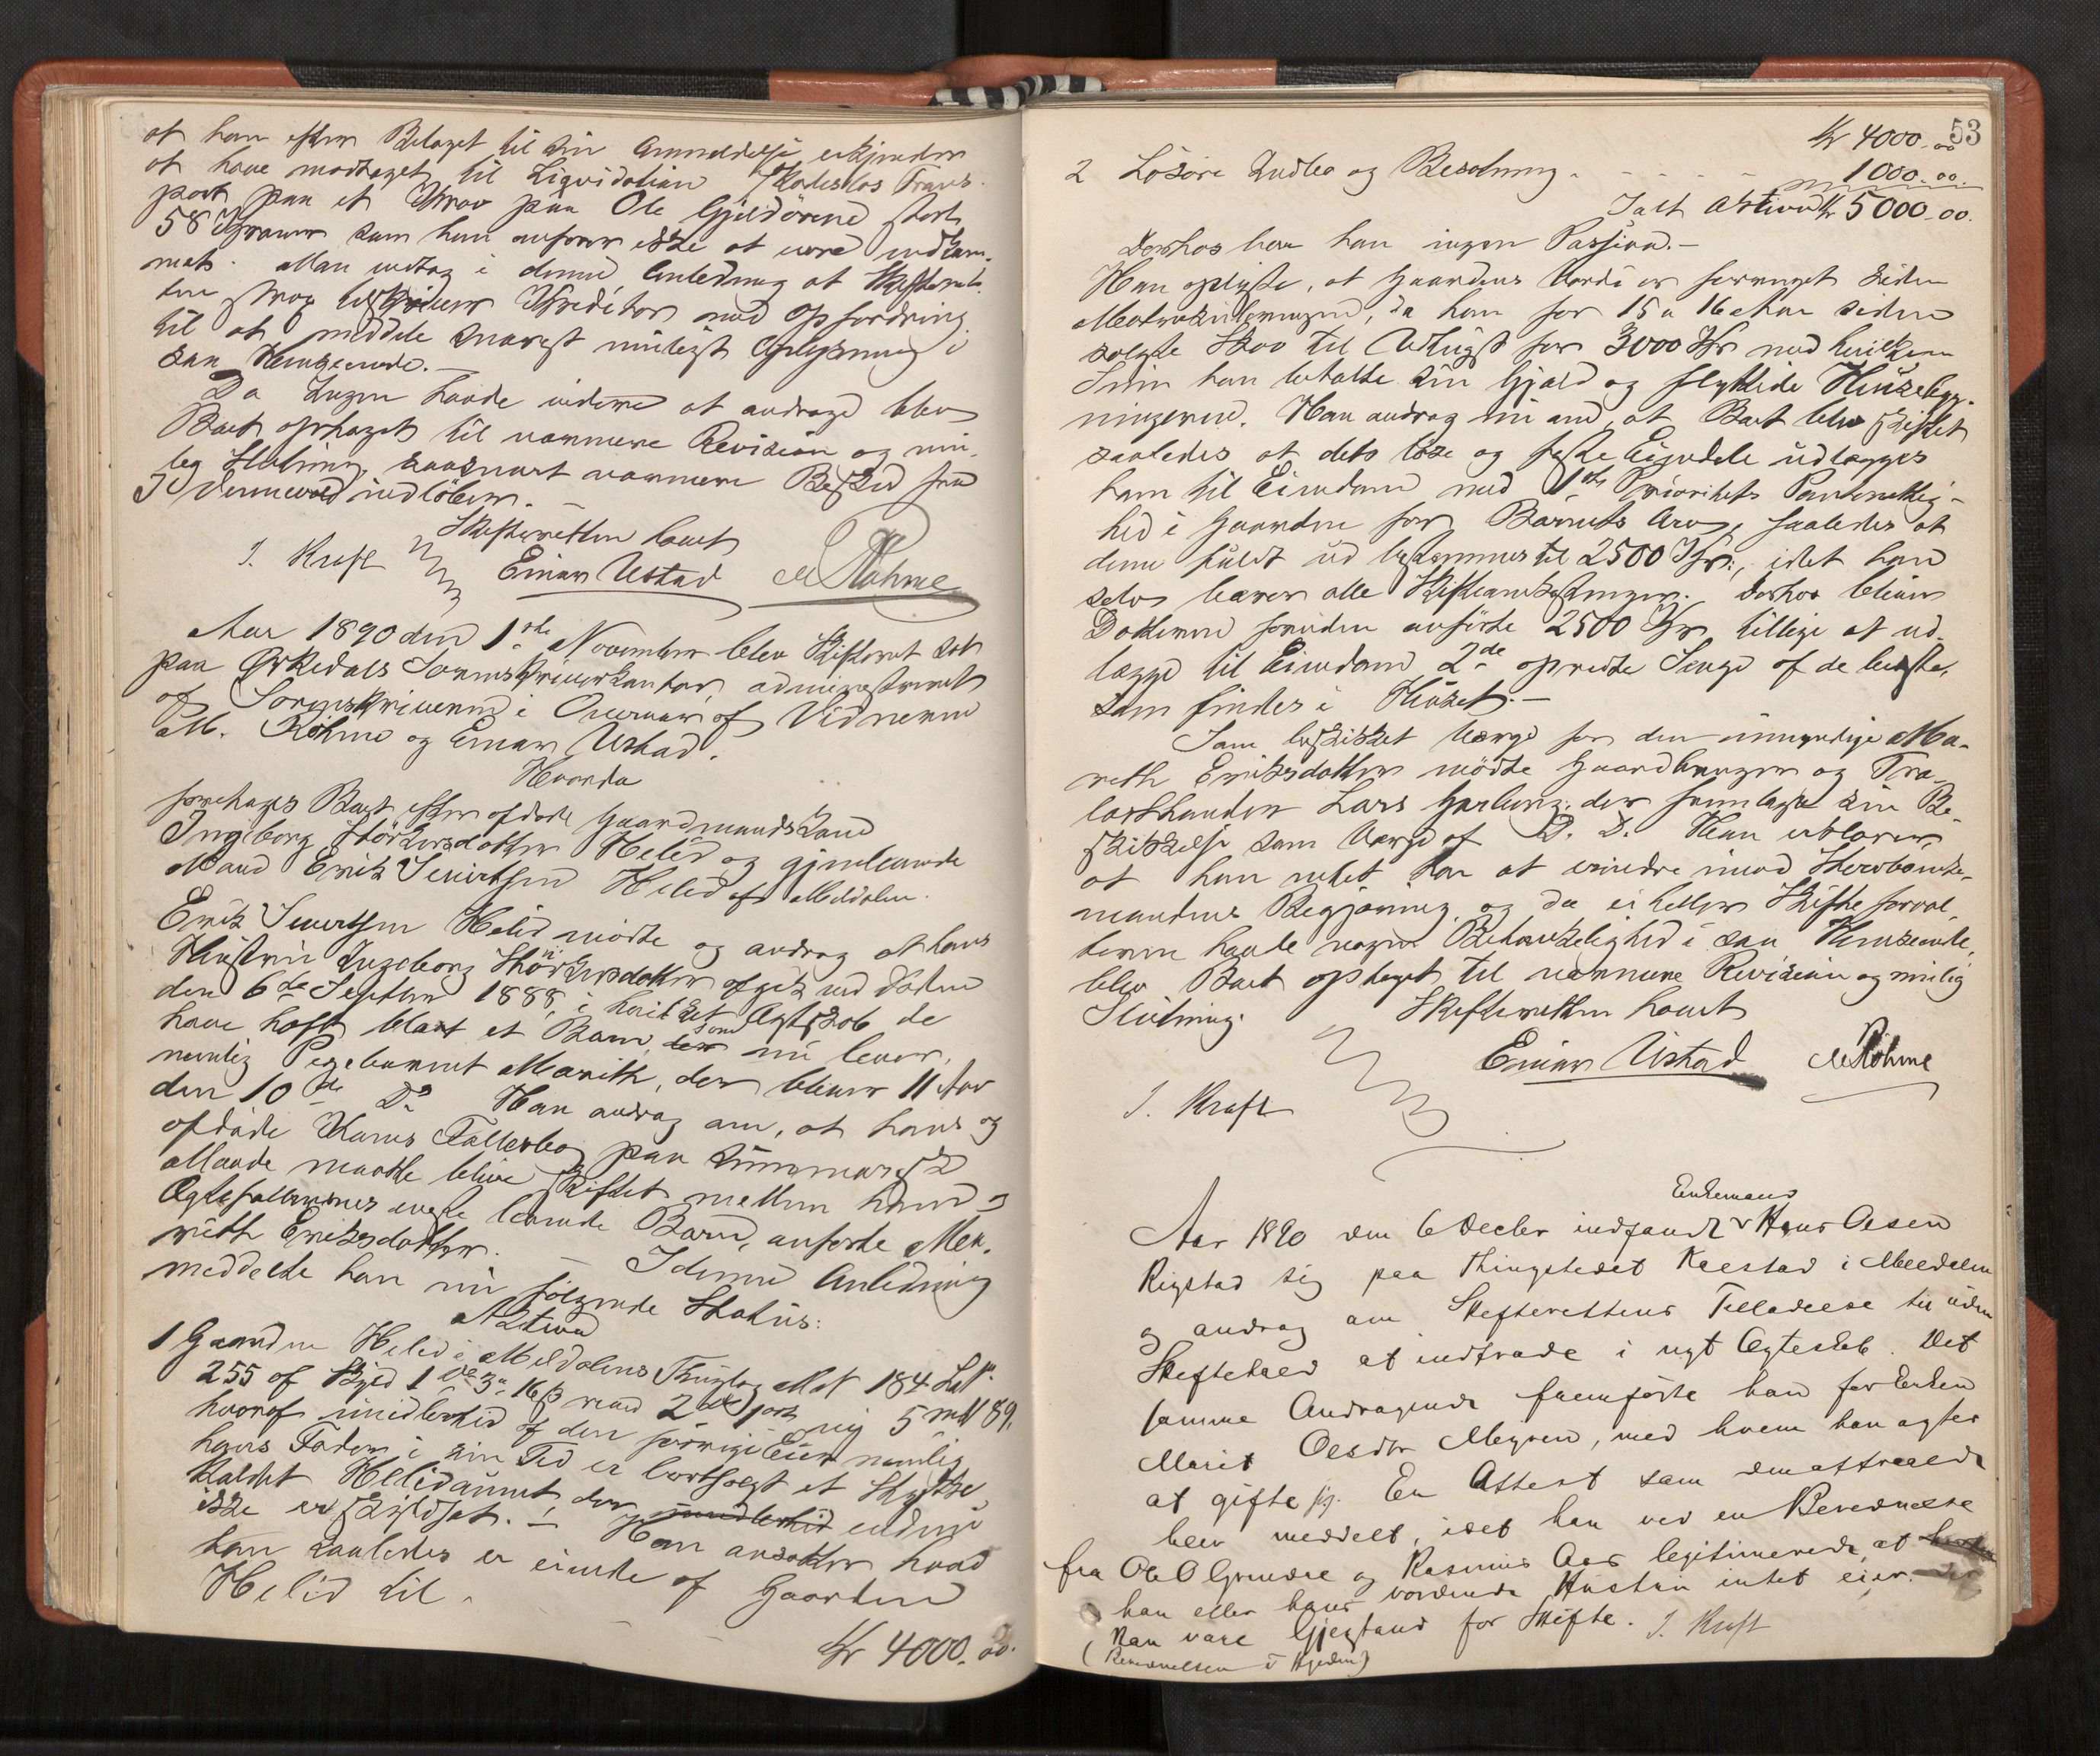 at han efter Bilaget til sin Anmeldelse erkjender
at have modtaget til Liqvidation Skadeslos Trans-
port paa et Krav paa Ole Gjeldörend stort
58 Kroner som han anforer ikke at være indkom-
met. Man indtog i denne Anledning at Skifteret-
ten strax tilskriver Kreditor med Opfordring
til at meddele snarest muligst Oplysning i
saa Henseende.-
Da Ingen havde videre at andrage blev
Boet optaget til nærmere Revision og mu-
lig Slutning, saasnart nærmere Besked fra
indlöber.
Skifteretten hævet
J. Kraft Einar Ustad M Röhme
Aar 1890 den 1ste November blev Skifteret sat
paa Örkedals Sorenskriverkontor, administreret
af Sorenskriveren i Overvær af Vidnerne
M. Röhme og Einar Ustad.
Hvorda
foretages Boet efter afdöde Gaardmandskone
Ingeborg Störkersdatter Helid og gjenlevende
Mand Erik Sivertsen Helid af Meldalen.
Erik Sivertsen Helid mödte og androg at hans
Hustru Ingeborg Störkersdatter afgik ved Döden
den 6te Septbr 1888, i hvilket Ægteskab de
have havt blot et Barn, der som nu lever,
nemlig Pigebarnet Marith, der bliver 11 Aar
den 10de Ds. Han androg om, at hans og
afdöde Kones Fællesbo paa summarisk
Maade maatte blive skiftet mellem ham og
Ægtefællernes eneste levende Barn, anforte Ma-
rith Eriksdatter. - I denne Anledning
meddelte han nu fölgende Status:
Aktiva
1 Gaarden Helid i Meldalens Thinglag Mat 184 Lit
255 af Skyld 1 16 ß revid 2 ny 5 mk 89,
hvoraf imidlertid af den forrige Eier nemlig
hans Fader i sin Tid er bortsolgt et Stykke
kaldet Helidaunet, der imidlertid endnu
ikke er skyldsat. - Han ansætter hvad
han saaledes er eiende af Gaarden
Helid til
Kr 4000.00.
53
Kr 4000.00
2 Lösöre Indbo og Besetning - - - - 1000.00.
Ialt Aktiva Kr 5000.00.
Derhos har han ingen Passiva.-
Han oplyste, at Gaardens Værdi er forringet siden
Matrikuleringen, da han for 15 a 16 Aar siden
solgte Skov til Udhugst for 3000 Kr med hvilken
Sum han betalte sin Gjæld og flyttede Husebyg-
ningerne. Han androg nu om, at Boet blev skiftet
saaledes at dets löse og faste Eiendele udlægges
ham til Eiendom med 1ste Prioritets Panterettig-
hed i Gaarden for Barnets Arv, saaledes at
denne fuldt ud bestemmes til 2500 Kr:, idet han
selv bærer alle Skifteomkostninger. Derhos bliver
Datteren foruden anförte 2500 Kr tillige at ud-
lægge til Eiendom 2de opredte Senge af de bedste,
som findes i Huset.-
Som beskikket Værge for den umyndige Ma-
rith Eriksdatter mödte Gaardbruger og Træ-
lasthandler Lars Garberg, der fremlagde sin Be-
skikkelse som Værge af D. D. Han erklærer,
at han intet har at erindre imod Stervboenke-
mandens Begjæring og da ei heller Skifteforval-
teren havde nogen Betænkelighed i saa Henseende,
blev Boet optaget til nærmere Revision og mulig
Slutning. Skifteretten hævet
Einar Ustad M Röhme
J. Kraft
Enkemand
Aar 1890 den 6 Decbr indfandt Hans Olsen
Rigstad sig paa Thingstedet Kaltstad i Meldalen
og androg om Skifterettens Tilladelse til uden
Skifteheld at indtræde i nyt Ægteskab. Det
samme Andragende fremförte han for Enken
Marit Olsdtr Megren, med hvem han agter
at gifte sig. En Attest som den attraaede
blev meddelt, idet han ved en Bevidnelse
fra Ole O Grindal og Rasmus Aas legitimerede, at
han eller hans vordende Hustru intet eier. der
kan være Gjenstand for Skifte. J. Kraft
(Bevidnelsen i Kjeden)